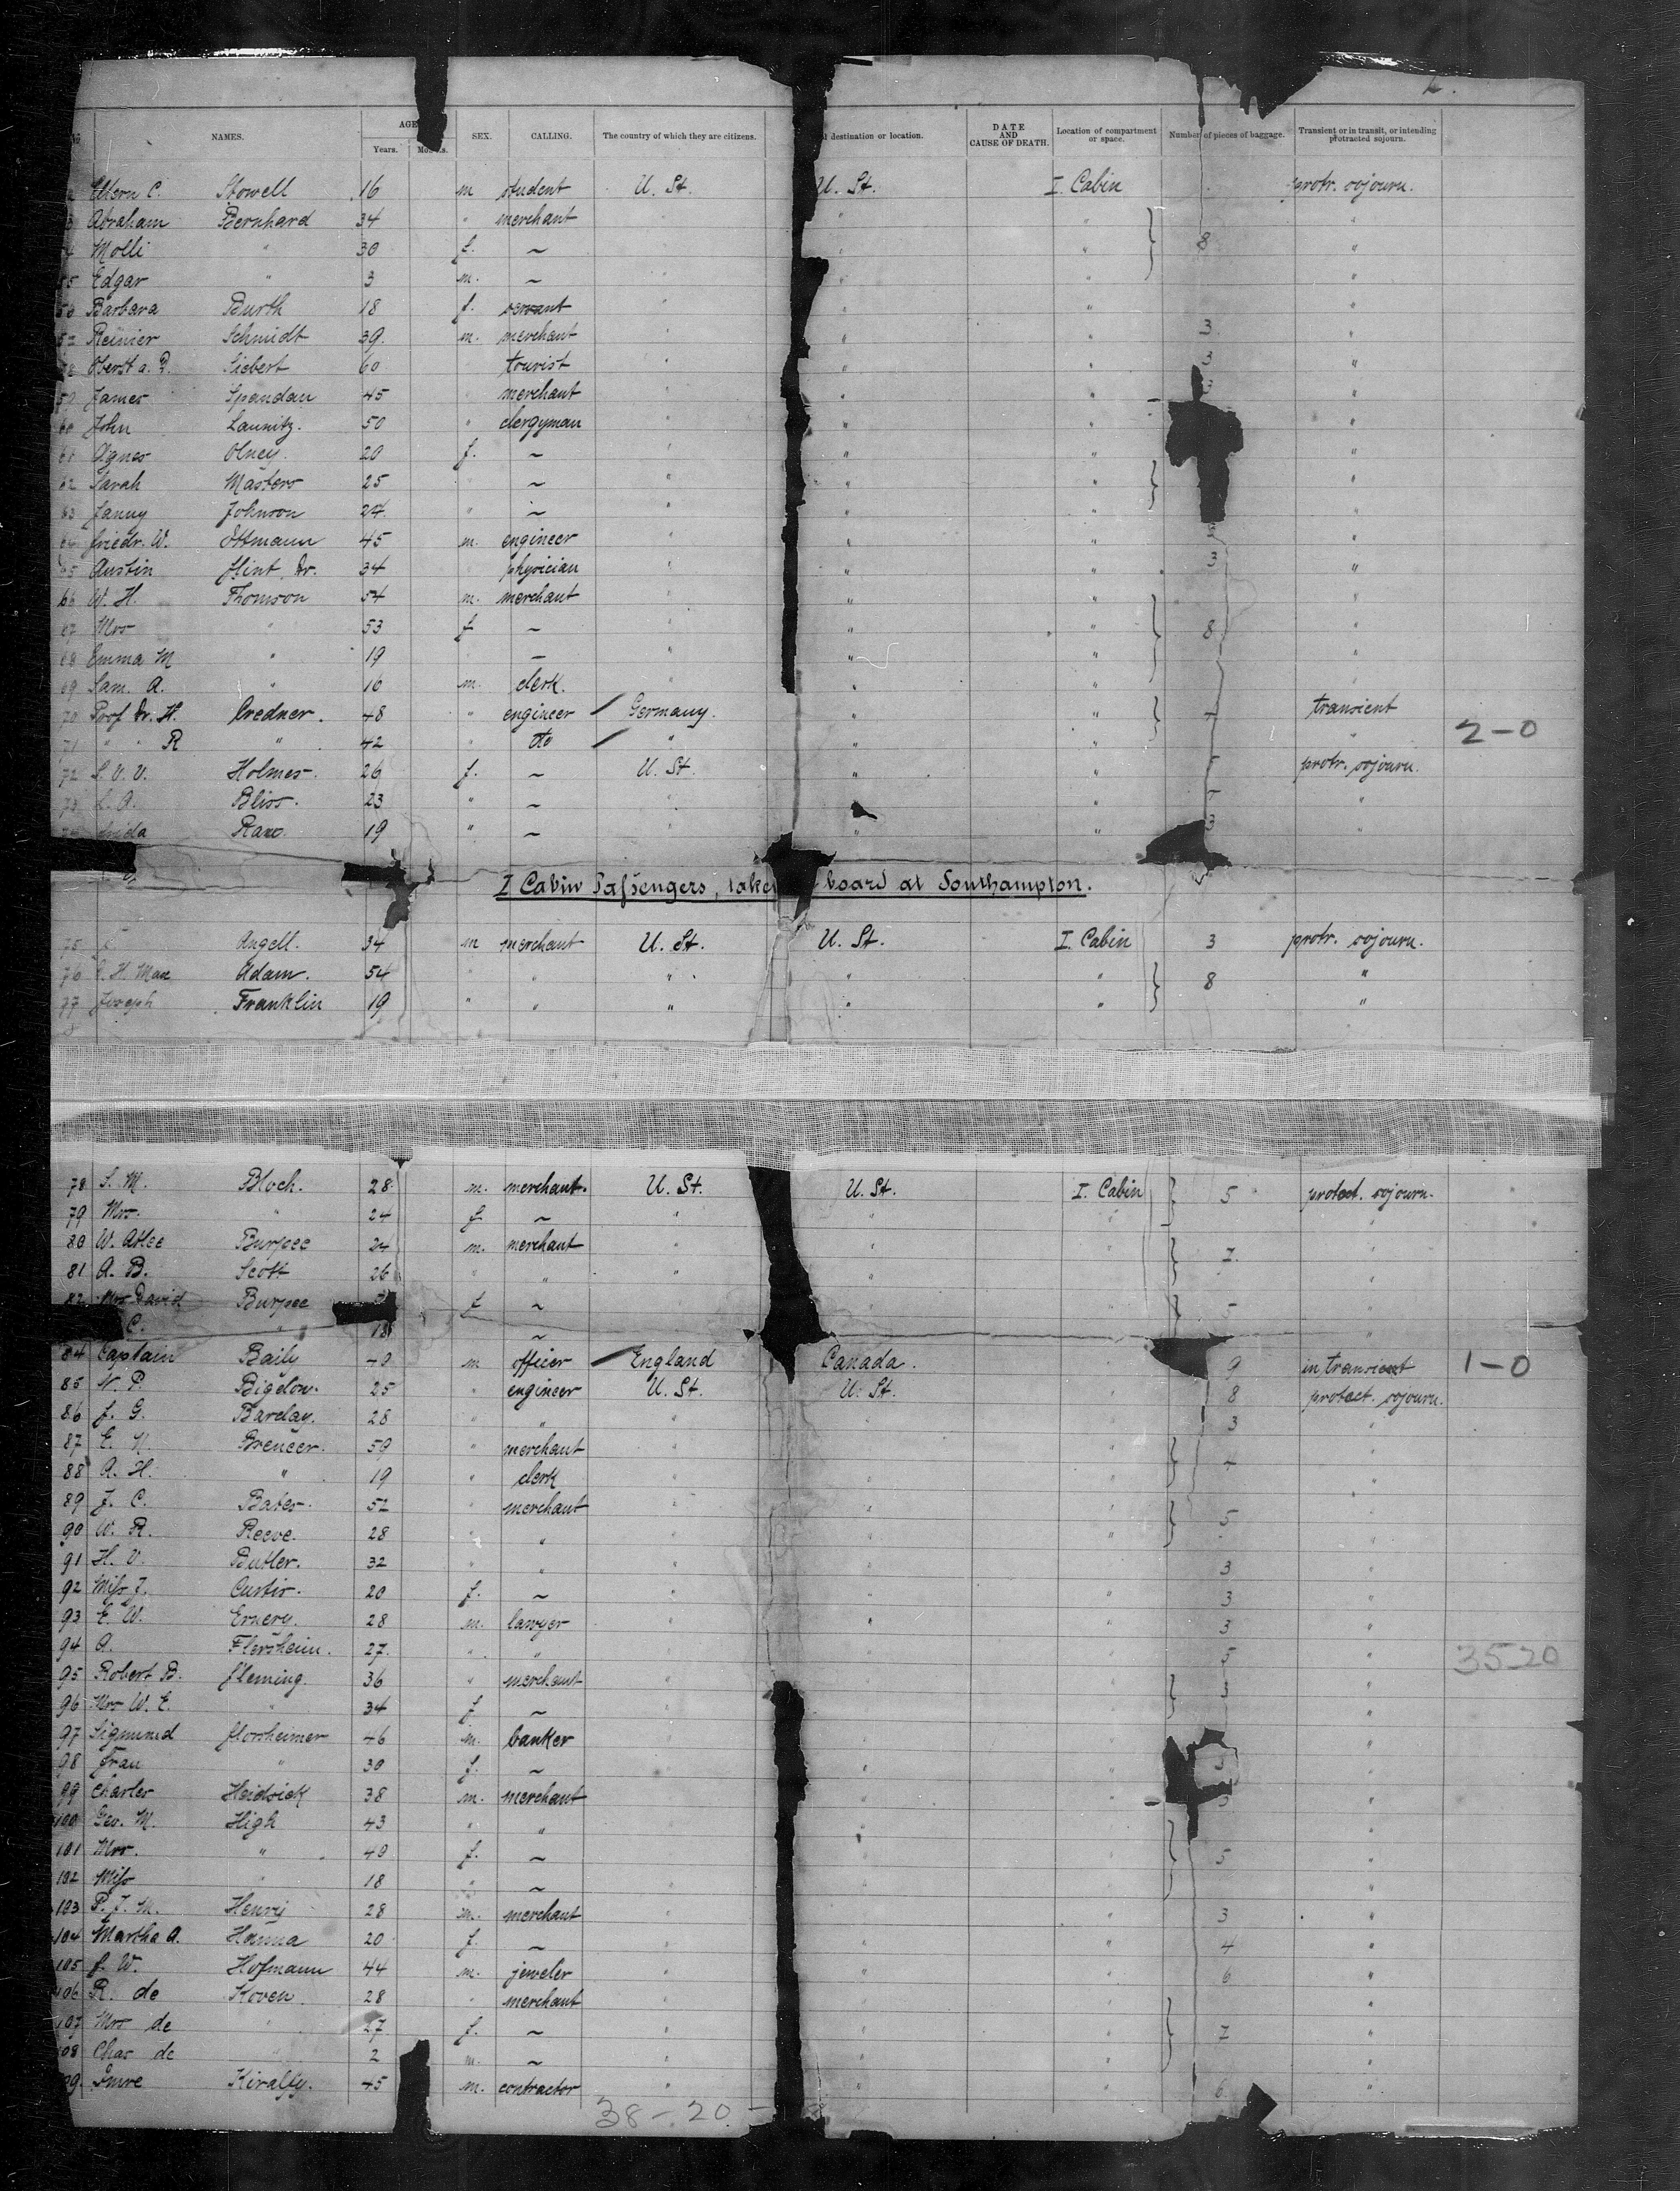 2.
No NAMES. AGE Years. Mon's. SEX. CALLING. The country of which they are citizens. l destination or location. DATE AND CAUSE OF DEATH. Location of compartment or space. Number of pieces of baggage. Transient or in transit, or intending protracted sojourn.
C. Stowell 16 m student U. St. U. St. I. Cabin protr. sojourn.
Abraham Bernhard 34 " merchant " " " "
4 Molli " 30 f. ~ " " " 8 "
55 Edgar " 3 m. ~ " " " "
56 Barbara Burth 18 f. servant " " " "
57 Reinier Schmidt 39. m. merchant " " " 3 "
58 Oberst a. D. Siebert 60 tourist " " " 3 "
59 James Spandau 45 merchant " " " 3 "
60 John Launitz. 50 " clergyman " " " "
61 Agnes Olney. 20 f. ~ " " " "
62 Sarah Masters 25 ~ " " " "
63 Fanny Johnson 24 " ~ " " " "
64 Friedr. W. Ottmann 45 m. engineer " " " "
65 Austin Flint Dr. 34 physician " " " 3 "
66 W. H. Thomson 54 m. merchant " " " "
67 Mrs " 53 f ~ " " " 8 "
68 Emma M " 19 ~ " " " "
69 Sam. A. " 16 m. clerk. " " " "
70 Prof Dr. H. Credner. 48 " engineer Germany. " " transient
71 " " R " 42 " do " " " " 2-0
72 Holmes. 26 f. ~ U. St. " " protr. sojourn.
73 A. Bliss. 23 " ~ " " " "
19 " ~ " " " 3 "
I Cabin Passengers, taken board at Southampton.
75 Angell. 34 m merchant U. St. U. St. I. Cabin 3 protr. sojourn.
76 H. Max Adam. 54 " " " " " 8 "
77 Joseph Franklin 19 " " " " " "
78 S. M. Bloch. 28 m. merchant. U. St. U. St. I. Cabin 5 protect. sojourn.
79 Mrs. " 24 f ~ " " " "
80 W. Atlee Burpee 24 m. merchant " " " 7. "
81 A. B. Scott 26 " " " " " "
82 Mrs David Burpee f ~ " " " 5 "
C. " 18 ~ " " " "
84 Captain Baily m officer England Canada. " 9 in transient 1-0
85 Bigelow. 25 " engineer U. St. U. St. " 8 protect. sojourn.
86 J. G. Barclay. 28 " " " " " 3 "
87 E. Brencer. 59 " merchant " " " "
88 A. H. " 19 " clerk " " " "
89 J. C. Bates. 52 " merchant " " " 5 "
90 W. R. Reeve. 28 " " " " " "
91 H. V. Butler. 32 " " " " " 3 "
92 Miss J. Curtis. 20 f. ~ " " " 3 "
93 E. W. Emery. 28 m. lawyer " " " 3 "
94 A. Flersheim. 27. " " " " " 5 " 35-20
95 Robert B. Fleming. 36 " merchant " " " 3 "
96 Mrs W. E. " 34 f ~ " " " "
97 Sigmund Florsheimer 46 m. banker " " " "
98 Frau " 30 f. ~ " " " 3 "
99 Charles Heidsick 38 m. merchant " " " 3 "
100 Geo. M. High 43 " " " " " "
101 Mrs. " 40 f. ~ " " " 5 "
102 Miss " 18 " ~ " " " "
103 P. J. M. Henrÿ 28 m. merchant " " " 3 "
104 Martha A. Hanna 20 f. ~ " " " 4 "
105 J. W. Hofmann 44 m. jeweler " " " 6 "
106 R. de Koven 28 " merchant " " " "
107 Mrs de " 27 f. ~ " " " 7 "
108 Chas de " 2 m. ~ " " " "
109 Imre Kiralfy. 45 m. contractor " " " 6 "
38-20.-